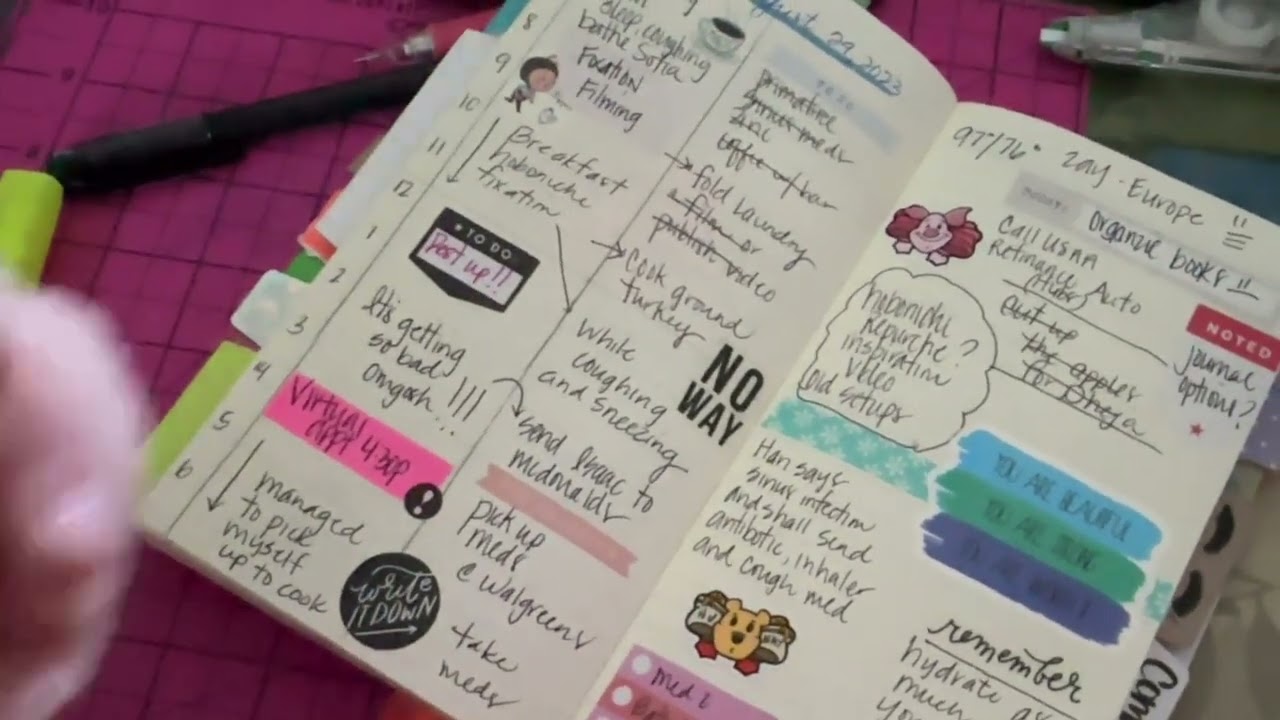 8
sleep, coughing
bathe Sofia
9
Focation
Filming
10
11
Breakfast
hobonichi
fixation
12
1
TO DO
Post up!!
2
3
It's getting
so bad
omgosh...!!!
4
Virtual
appt 4:30p
5
6
managed
to pick
myself
up to cook
write
IT DOWN
August 29, 2023
TO DO
primative
meds
fold laundry
a film or
publish video
Cook ground
turkey
while
coughing
and sneezing
NO
WAY
send Isaac to
mcdonalds
pick up
meds
@ Walgreens
take
meds
97/76°
Zay - Europe
organize books
Call USAA
Refinance Auto
hobonichi
Repurche?
inspiration
video
old setups
cut up
the apples
for Dheja
NOTED
journal
option?
Han says
sinus infection
and shall send
antibotic, inhaler
and cough med
YOU ARE BEAUTIFUL
YOU ARE STRONG
HUNNY
remember
hydrate as
much
you
med 2